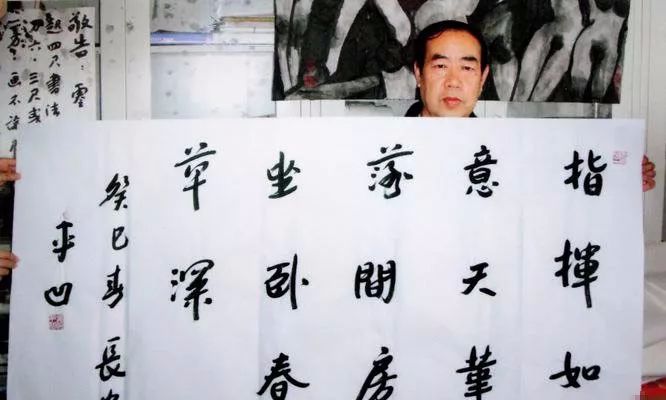 指揮如
意天華
落間房
坐卧春
草深
癸巳春長
平凹
敬告：零
四尺書法
六三尺
画不